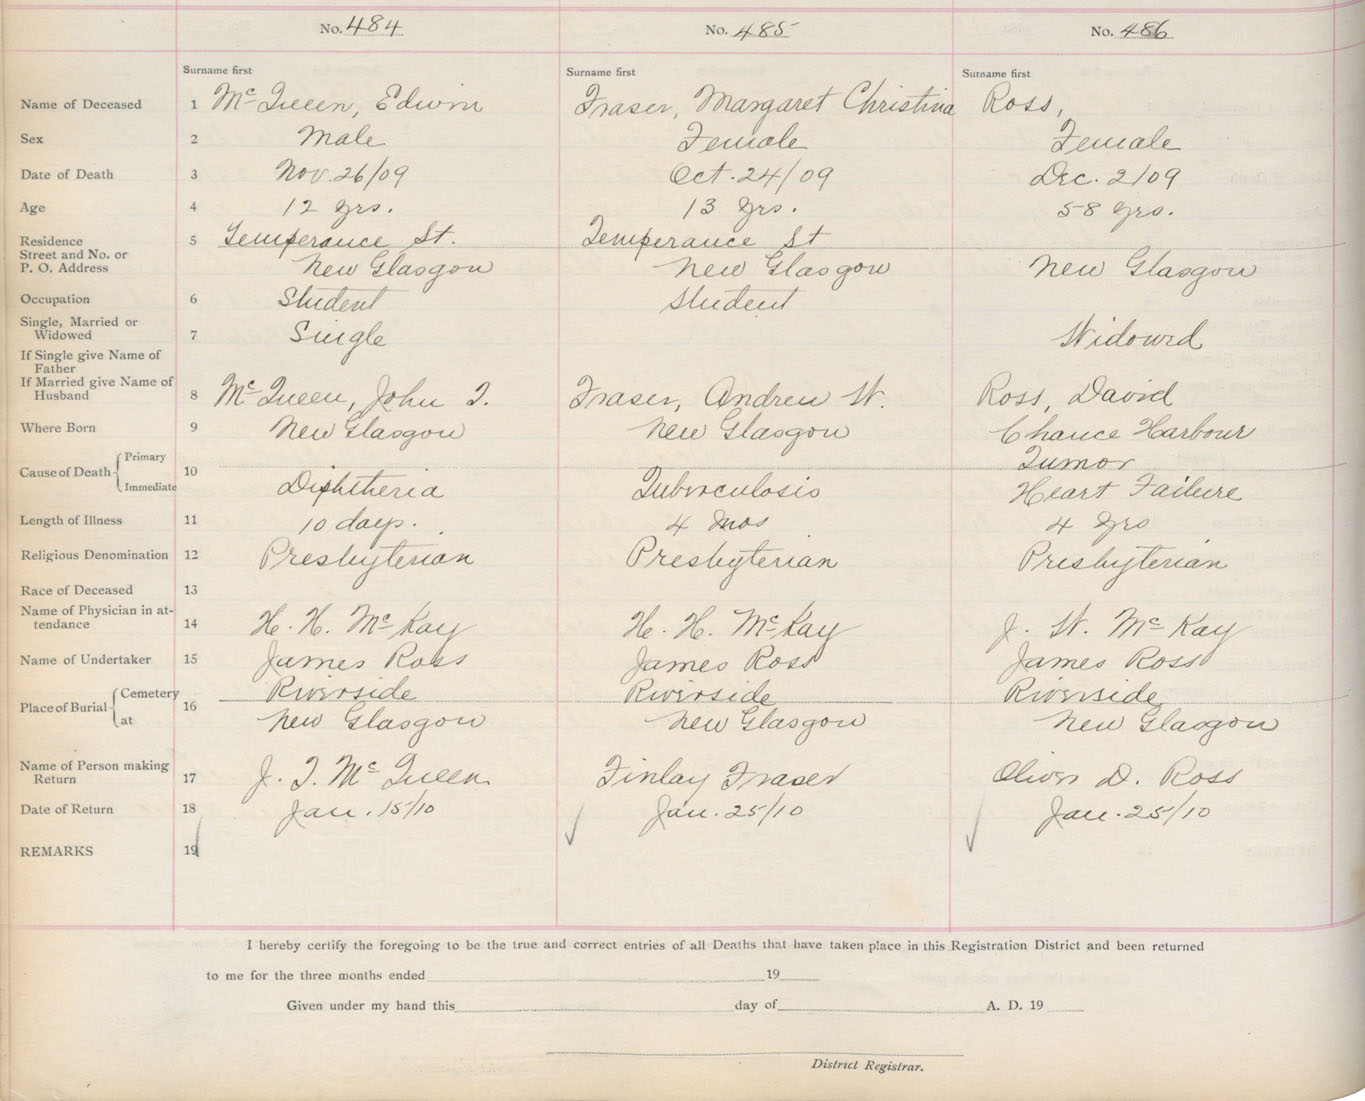 No. 484 No. 485 No. 486
Surname first Surname first Surname first
Name of Deceased 1 McQueen, Edwin Fraser, Margaret Christina Ross,
Sex 2 Male Female Female
Date of Death 3 Nov. 26/09 Oct. 24/09 Dec. 2/09
Age 4 12 yrs. 13 yrs. 58 yrs.
Residence 5 Temperance St. Temperance St
Street and No. or
P. O. Address New Glasgow New Glasgow New Glasgow
Occupation 6 Student Student
Single, Married or
Widowed 7 Single Widowed
If Single give Name of
Father
If Married give Name of
Husband 8 McQueen, John T. Fraser, Andrew W. Ross, David
Where Born 9 New Glasgow New Glasgow Chance Harbour
Cause of Death Primary 10 Tumor
Immediate Diphtheria Tuberculosis Heart Failure
Length of Illness 11 10 days. 4 mos 4 yrs
Religious Denomination 12 Presbyterian Presbyterian Presbyterian
Race of Deceased 13
Name of Physician in at-
tendance 14 H. H. McKay H. H. McKay J. W. McKay
Name of Undertaker 15 James Ross James Ross James Ross
Place of Burial Cemetery 16 Riverside Riverside Riverside
at New Glasgow New Glasgow New Glasgow
Name of Person making
Return 17 J. T. McQueen Finlay Fraser Oliver D. Ross
Date of Return 18 Jan. 15/10 Jan. 25/10 Jan. 25/10
REMARKS 19
I hereby certify the foregoing to be the true and correct entries of all Deaths that have taken place in this Registration District and been returned
to me for the three months ended 19
Given under my hand this day of A. D. 19
District Registrar.